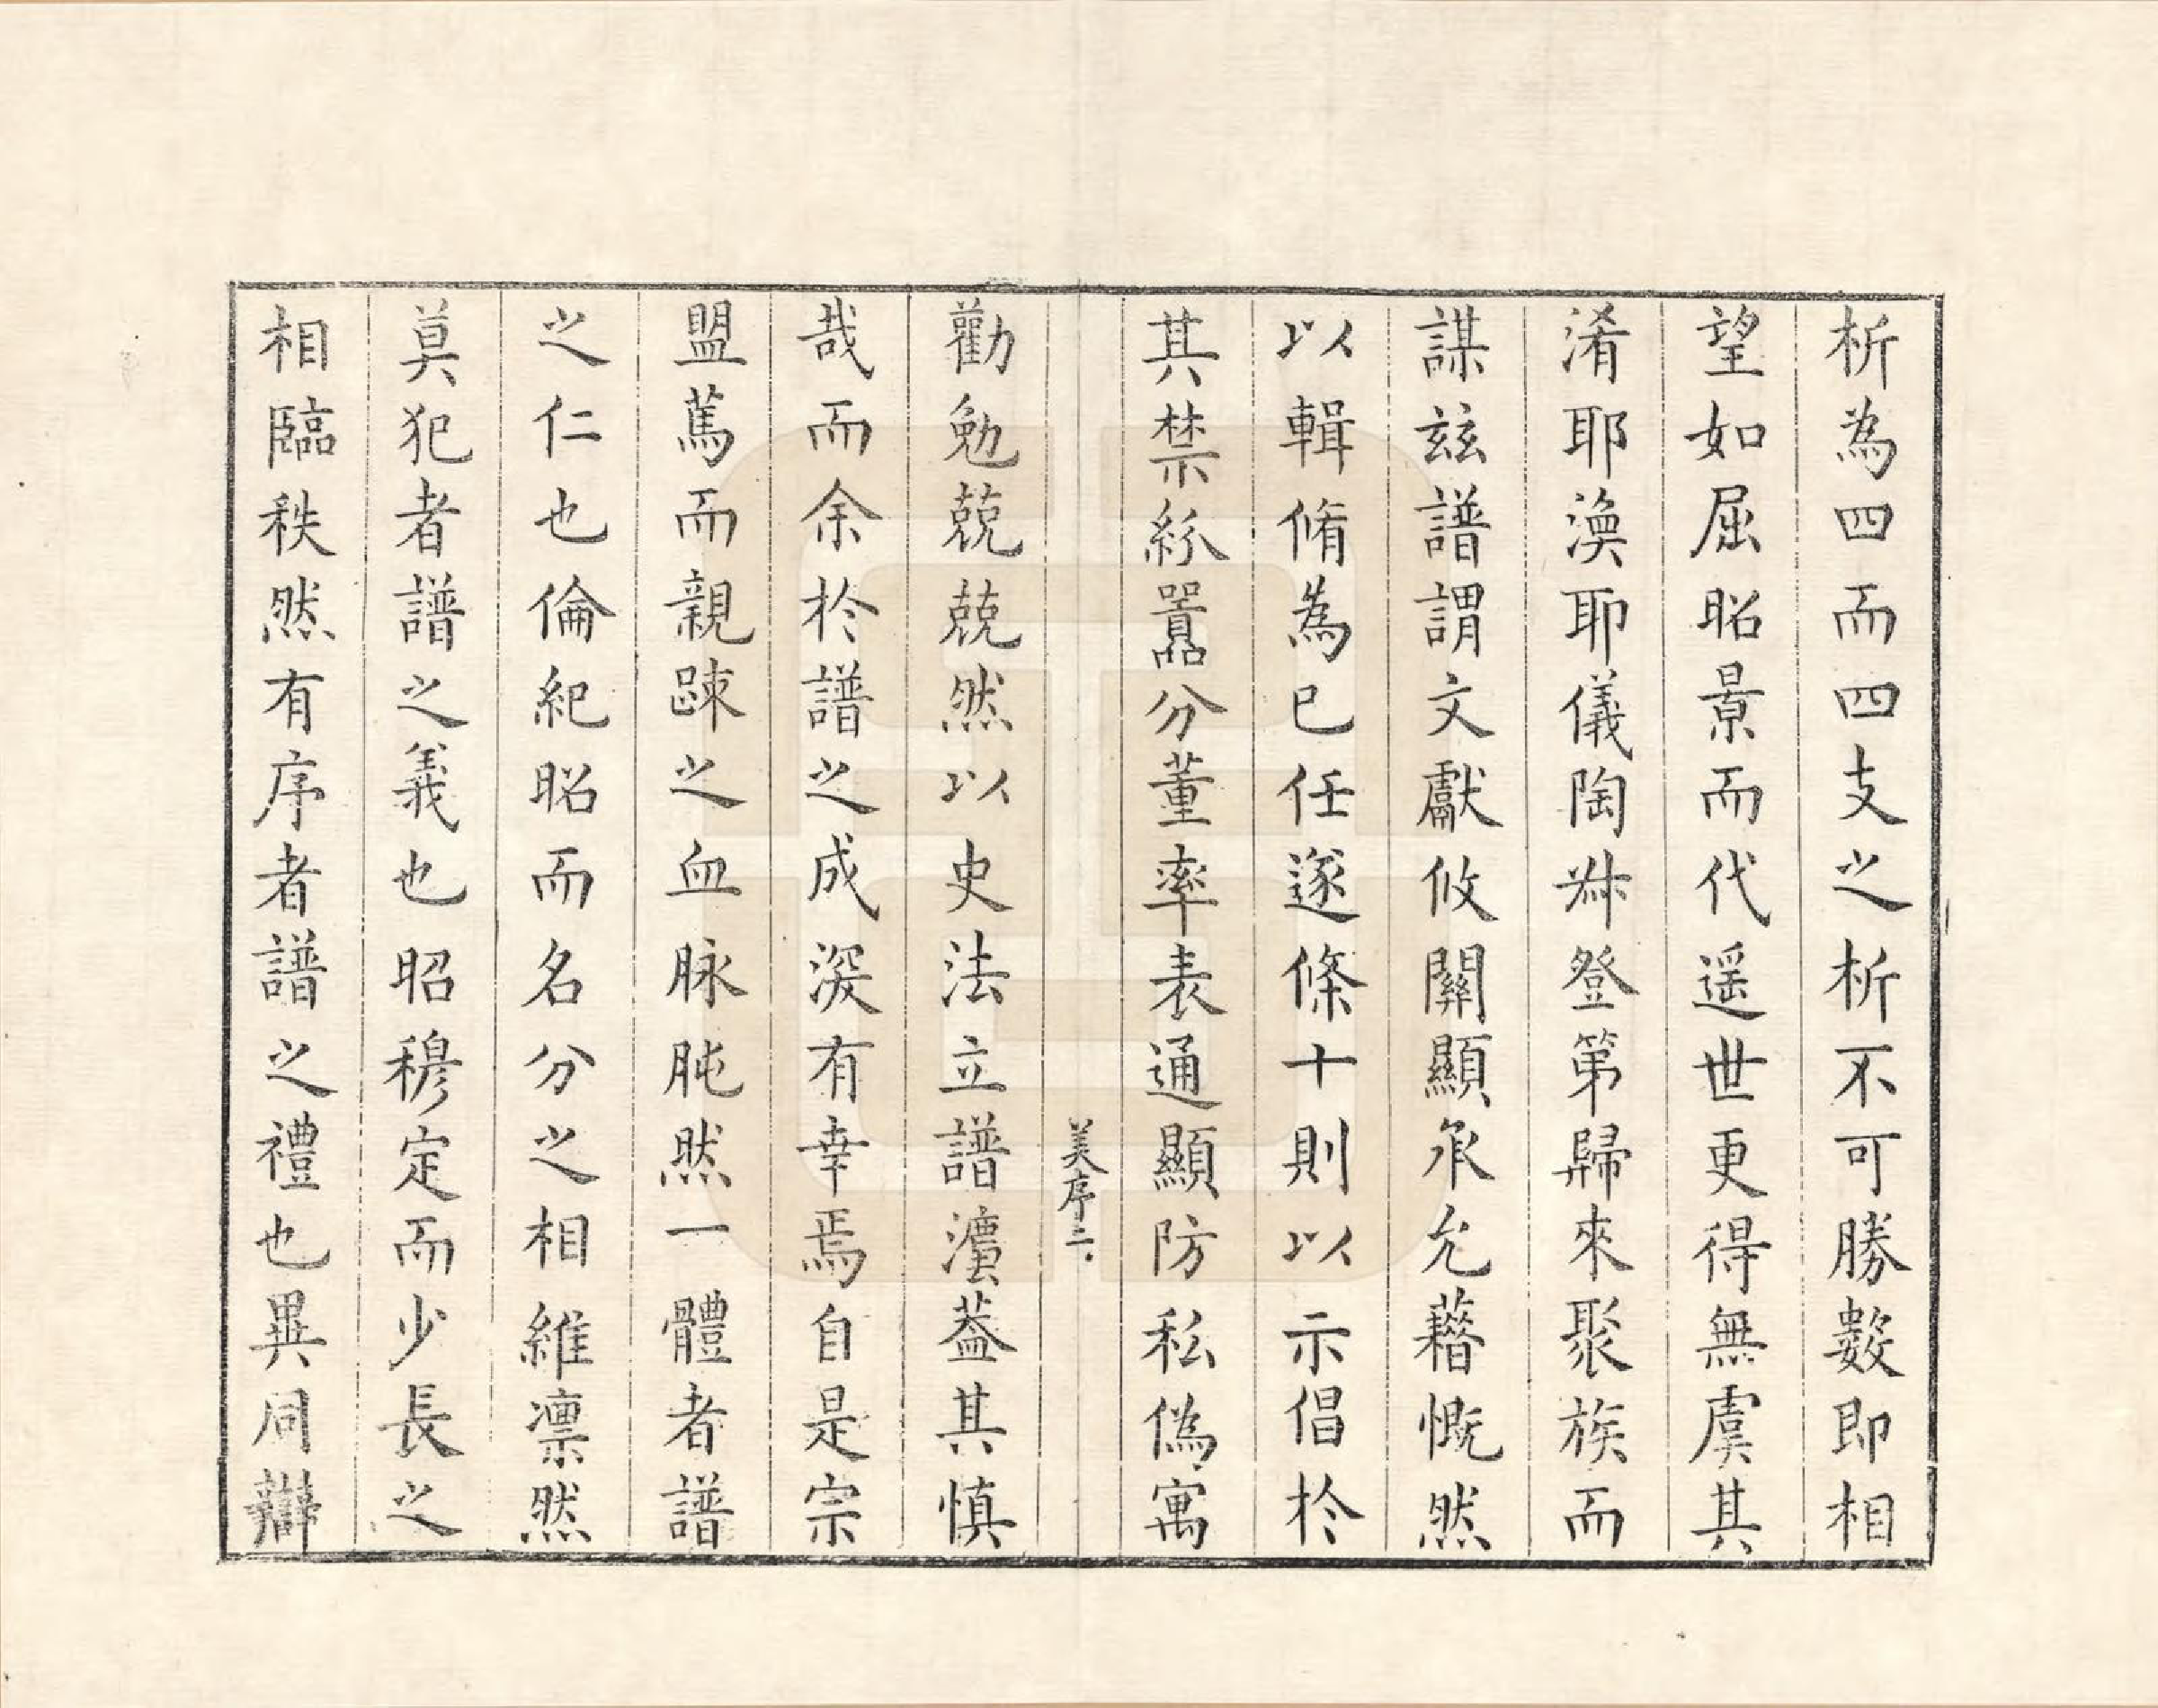 析為四而四支之析不可勝數即相
望如屈昭景而代遥世更得無虞其
淆耶渙耶儀陶叅登第歸來聚族而
謀玆譜謂文獻攸關顯承允藉慨然
以輯脩為已任遂條十則以示倡於
其禁綜嚣分董率表通顯防私偽寓
美序二
勸勉兢兢然以史法立譜灋葢其慎
哉而余於譜之成深有幸焉自是宗
盟篤而親踈之血脉肫然一體者譜
之仁也倫紀昭而名分之相維凛然
莫犯者譜之義也昭穆定而少長之
相臨秩然有序者譜之禮也異同辯